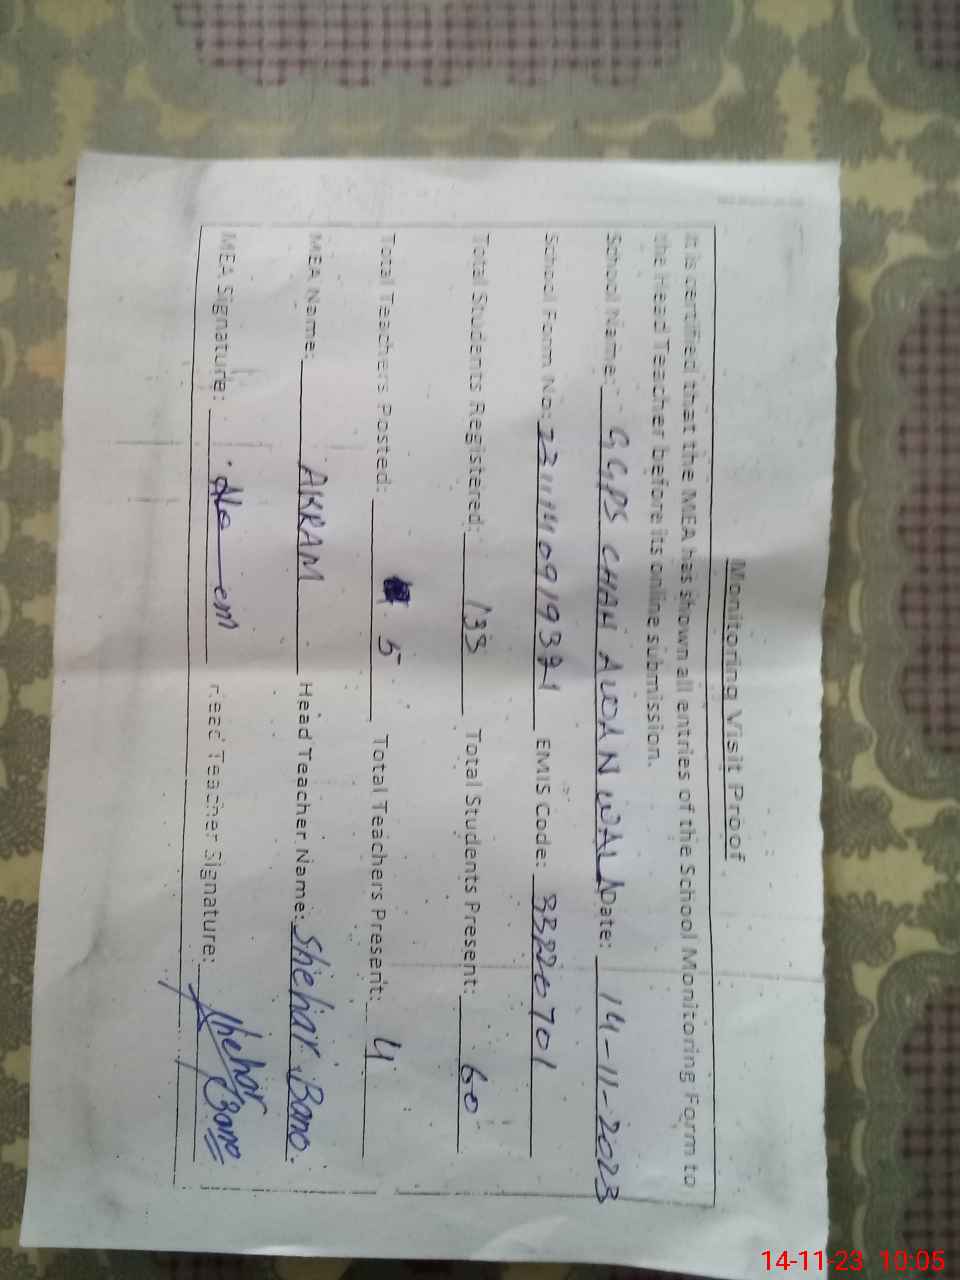 Monitoring Visit Proof
It is certified that the MEA has shown all entries of the School Monitoring Form to
the Head Teacher before its online submission.
School Name: GGPS CHAH AWAN WALA Date: 14-11-2023
School Form No: EMIS Code: 33220701
Total Students Registered: 133 Total Students Present: 60
Total Teachers Posted: 5 Total Teachers Present: 4
MEA Name: AKRAM Head Teacher Name: Shehar Bano.
MEA Signature: Head Teacher Signature: Shehar Bano
14-11-23 10:05